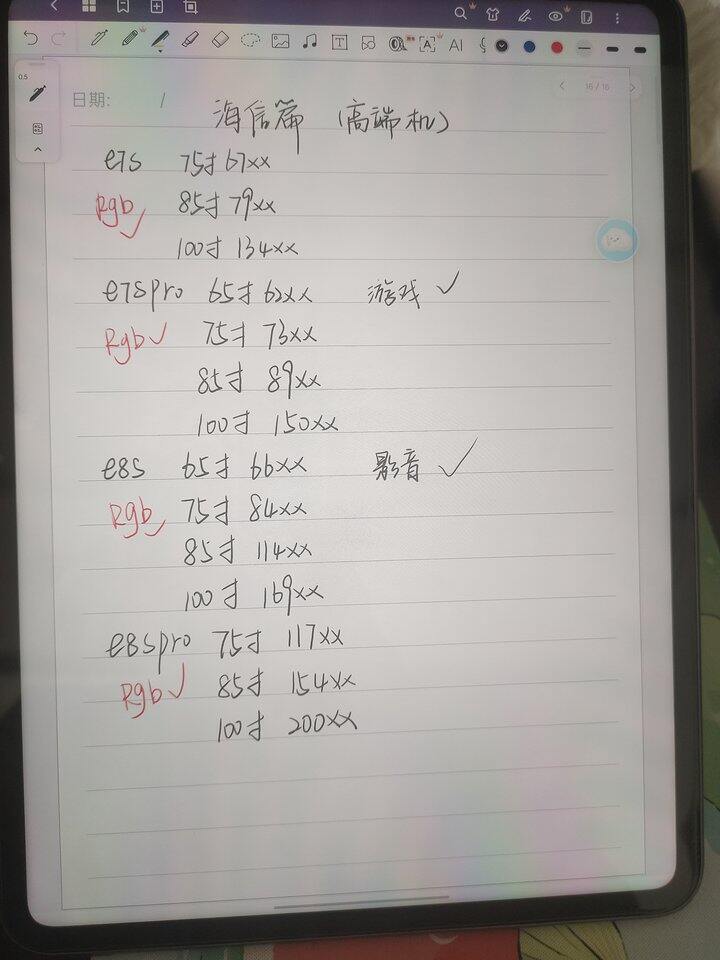 0.5
16/16
日期: /
海信篇 (高端机)
e7s 75寸 67xx
Rgb✓ 85寸 79xx
100寸 134xx
e7spro 65寸 62xx 游戏 ✓
Rgb✓ 75寸 73xx
85寸 89xx
100寸 150xx
e8s 65寸 66xx 影音 ✓
Rgb✓ 75寸 84xx
85寸 114xx
100寸 169xx
e8spro 75寸 117xx
Rgb✓ 85寸 154xx
100寸 200xx